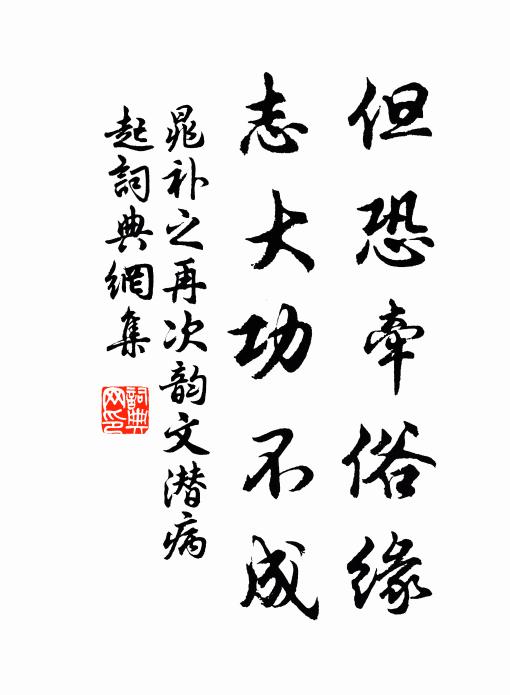 但恐牽俗緣
志大功不成
晁补之再次韵文潜病
起詞典網集
詞典
网印